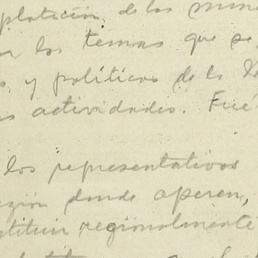 plotación de las min
los temas que se
s, y políticos de la
as actividades. Fué
los representativos
región donde operen,
stituir regionalmente